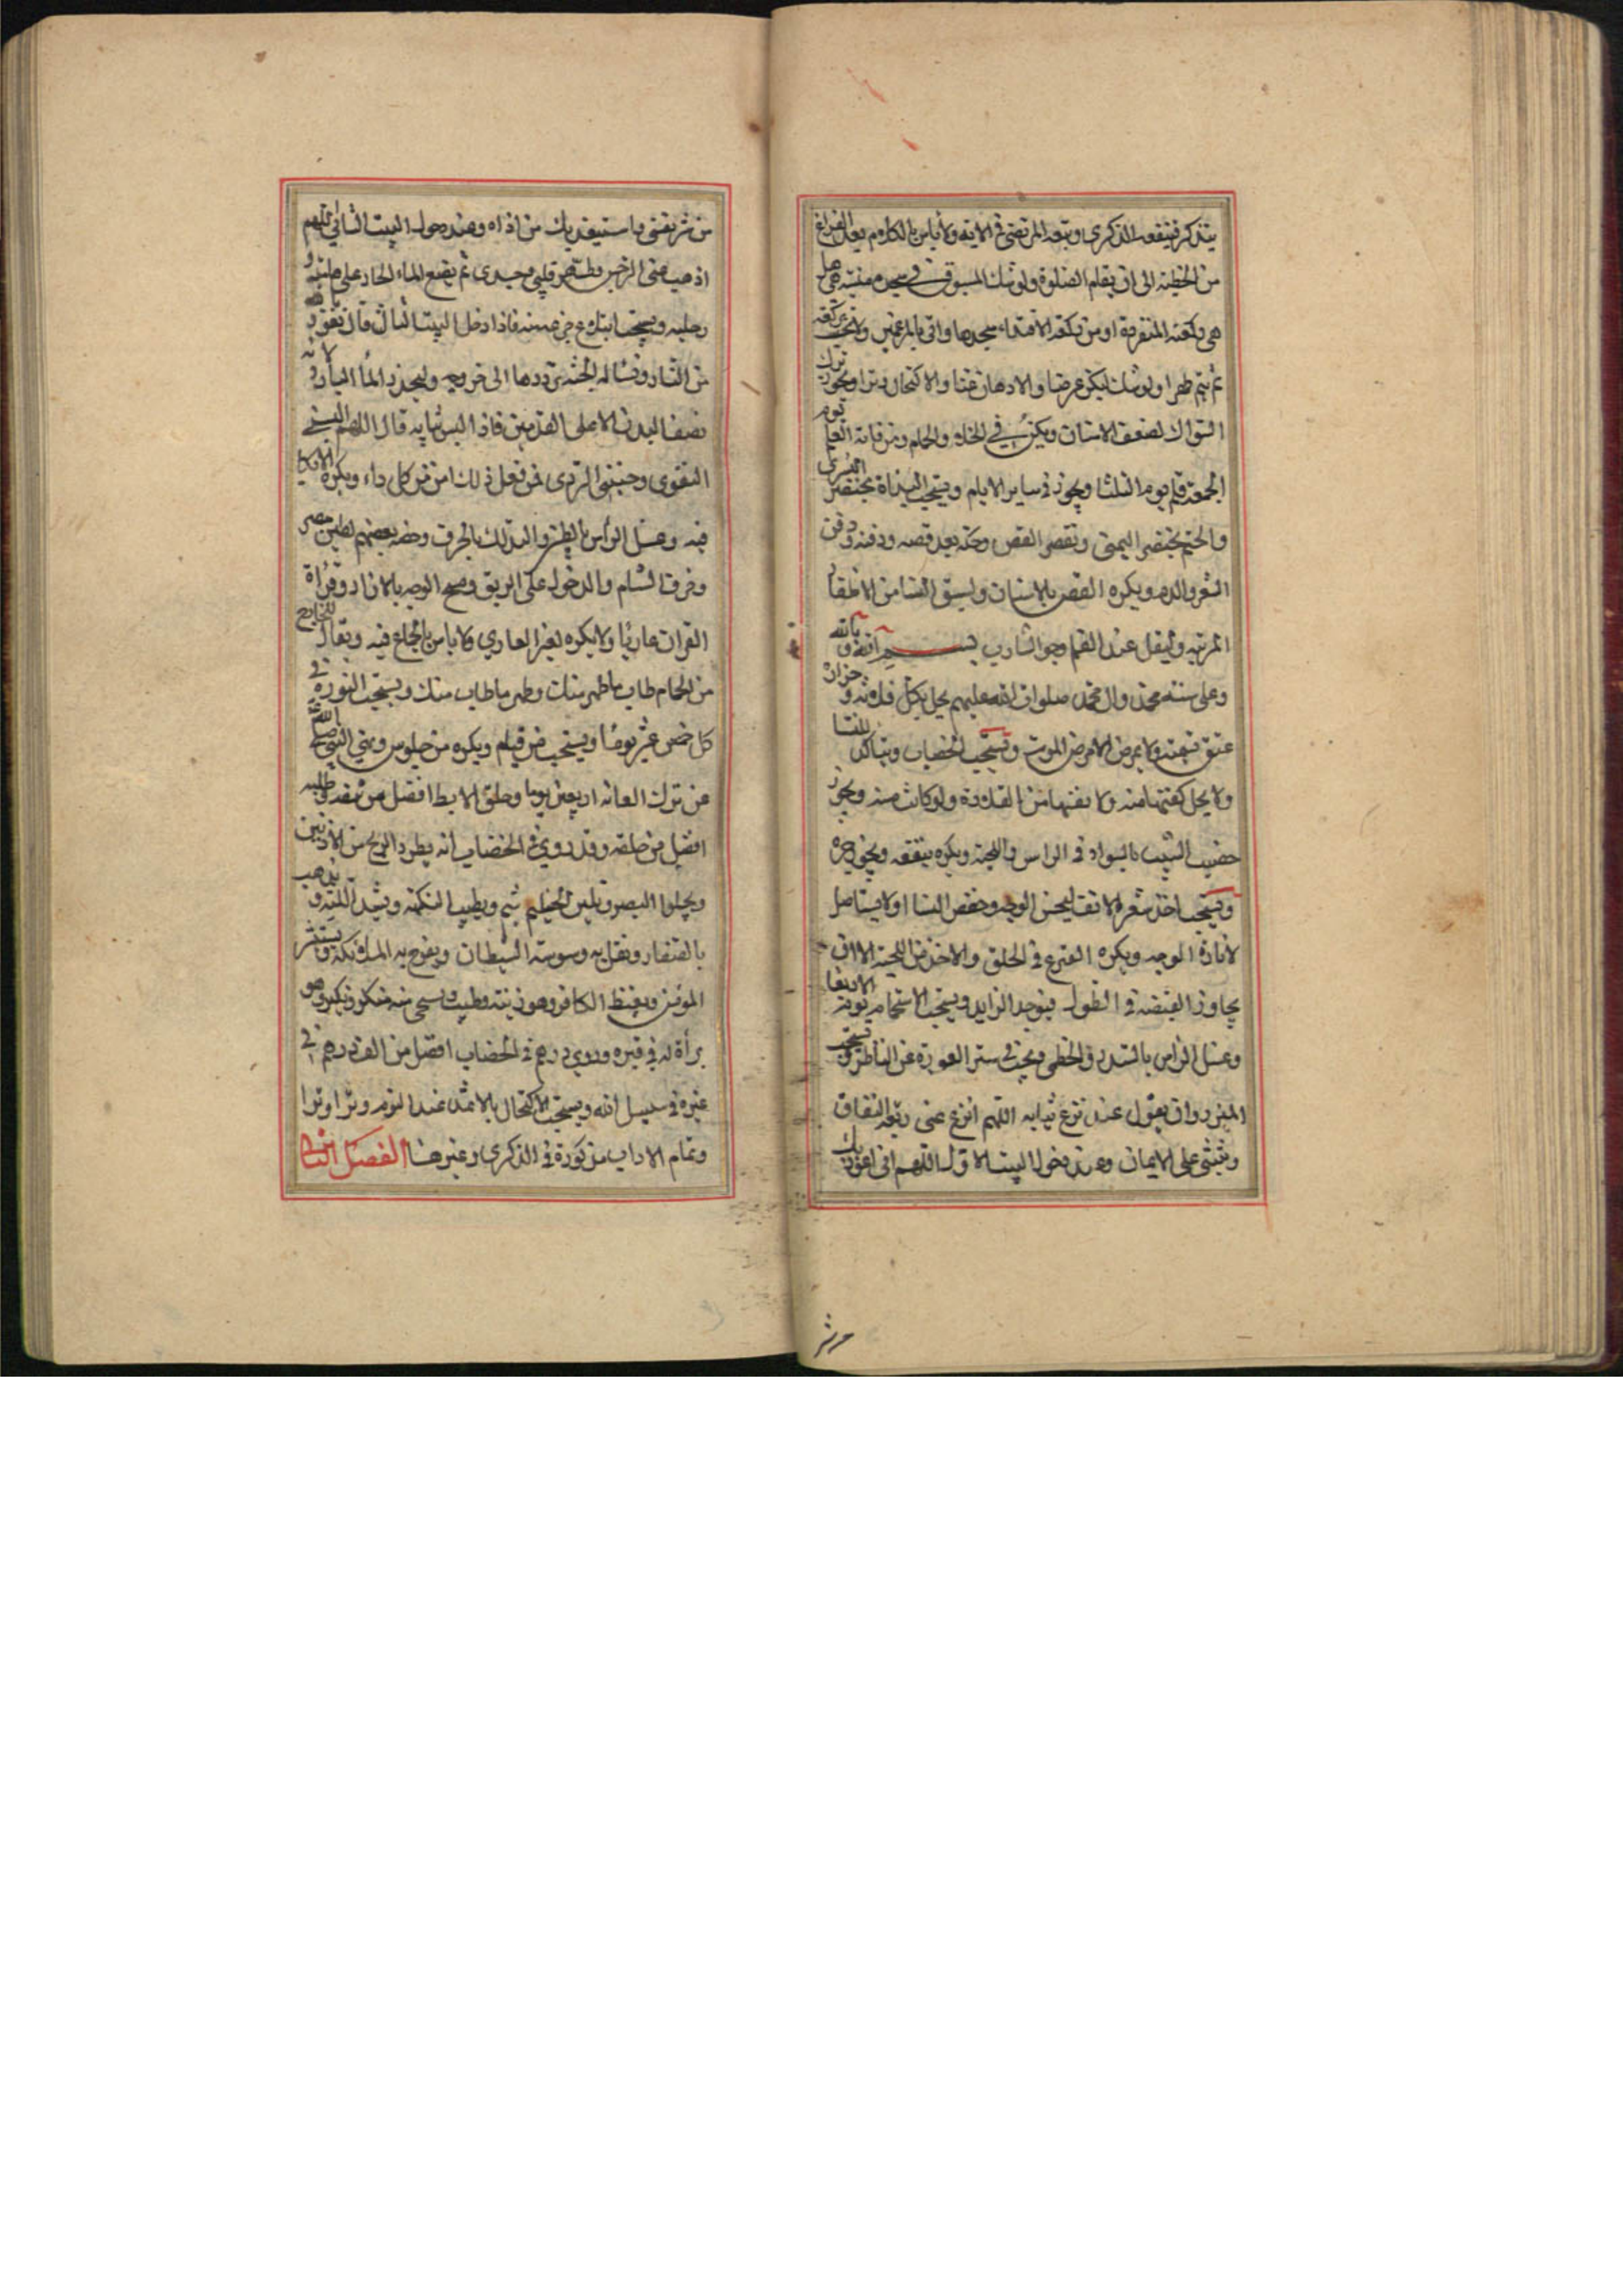 يتذكر فتنفعه الذكرى وتبعه المرتضى في الاية ولا باس بالكلام بعد الفراغ
من الخطبة الى ان يقام الصلوة ولو شك المسبوق في سجدة منسية هل
هي ركعته المنفردة او من ركعة الاقتداء سجدها واتى بالمرغمتين
ثم يتم ظهرا ويستاك عرضا والادهان غبا والاكتحال وترا ويجوز ترك
السواك لضعف الاسنان ويكره في الخلاء والحمام ومن فاته القلم يوم
الجمعة فليوم الثلثا ويجوز في ساير الايام ويستحب البداة بخنصر اليسرى
والختم بخنصر اليمنى وتقصير القص وحكه بعد قصه ودفنه ودفن
الشعر والدم ويكره القص بالاسنان
وليقل عند القلم وجز الشارب بسم الله وبالله
وعلى سنة محمد وال محمد صلوات الله عليهم بكل قلامة وجزازة
عتق نسمة ولا يمرض الا مرض الموت ويستحب الخضاب ويتاكد للنسا
ولا يخل كفيها منه ولا عنقها من القلادة ولو كانت مسنة ويجوز
خضيب الشيب بالسواد في الراس واللحية ويكره نتفه ويجوز جزه
ويستحب اخذ شعر الانف ليحسن الوجه وخفض النسا ولا يستاصل
لانارة الوجه ويكره القزع في الحلق والاخذ من اللحية الا ان
يجاوز القبضة في الطول فيؤخذ الزايد ويستحب الاستحمام يوم الاربعا
وغسل الراس بالسدر والخطمي ويجب ستر العورة عن الناظر ويستحب
الميزر وان يقول عند نزع ثيابه اللهم انزع عني ربقة النفاق
وثبتني على الايمان وعند دخول البيت الاول اللهم اني اعوذ بك
من شر نفسي واستعيذ بك من اذاه وعند دخول البيت الثاني اللهم
اذهب عني الرجس وطهر قلبي وجسدي ثم يضع الماء الحار على هامته و
رجليه ويستحب ابتلاع جرعة منه فاذا دخل البيت الثالث قال نعوذ بالله
من النار ونساله الجنة يرددها الى خروجه وليحذر الماء البارد لانه
يضعف البدن الا على القدمين فاذا لبس ثيابه قال اللهم البسني
التقوى وجنبني الردى فمن فعل ذلك امن من كل داء ويكره الاتكا
فيه وغسل الراس بالطين والتدلك بالخزف وخصه بعضهم بطين مصر
وخزف الشام والدخول على الريق ومسح الوجه بالازار وقراة
القران عاريا ولا يكره لغير العاري ولا باس بالجماع فيه ويقال للخارج
من الحمام طاب ما طهر منك وطهر ما طاب منك ويستحب النورة في
كل خمس عشر يوما ويستحب من قيام ويكره من جلوس ونهى النبي
عن ترك العانة اربعين يوما وحلق الابط افضل من نتفه وطليه
افضل من حلقه وقد روي في الخضاب انه يطرد الريح من الاذنين
ويجلوا البصر ويلين الخياشيم ويطيب النكهة ويشد اللثة و يذهب
بالصنان ويقل به وسوسة الشيطان ويفرح به الملائكة ويستبشر
المؤمن ويغيظ الكافر وهو زينة وطيب ويستحي منه منكر ونكير وهو
براة له في قبره وروي درهم في الخضاب افضل من الف درهم في
غيره في سبيل الله ويستحب الاكتحال بالاثمد عند النوم وترا وترا
وتمام الاداب مذكورة في الذكرى وغيرها الفصل الثاني
من شر